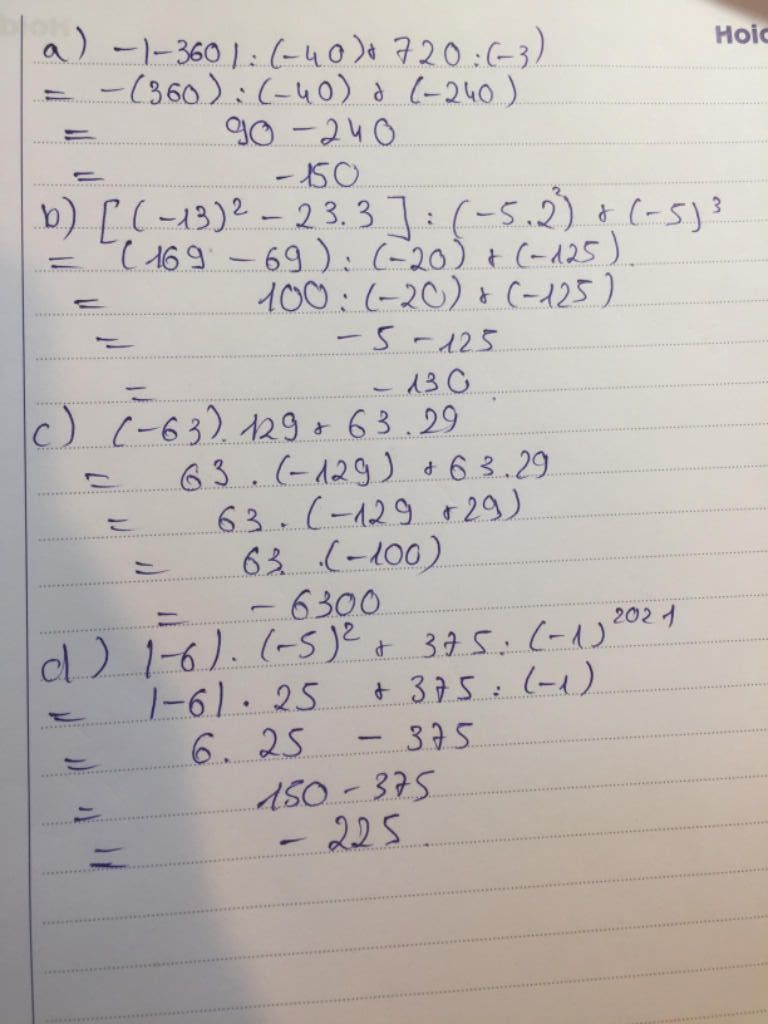 Hoid
a) -|-360| : (-40) + 720 : (-3)
= -(360) : (-40) + (-240)
= 90 - 240
= -150
b) [(-13)² - 23.3] : (-5.2²) + (-5)³
= (169 - 69) : (-20) + (-125).
= 100 : (-20) + (-125)
= - 5 - 125
= - 130.
c) (-63). 129 + 63.29
= 63 . (-129) + 63.29
= 63 . (-129 + 29)
= 63 .(-100)
= - 6300
d) |-6| . (-5)² + 375 : (-1)²⁰²¹
= |-6| . 25 + 375 : (-1)
= 6 . 25 - 375
= 150 - 375
= - 225.